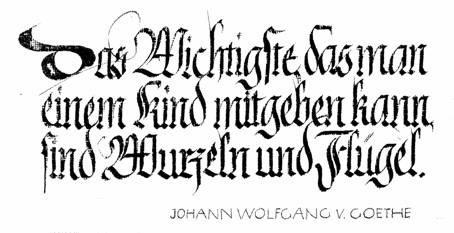 Das Wichtigste, das man
einem Kind mitgeben kann,
sind Wurzeln und Flügel.
JOHANN WOLFGANG V. GOETHE